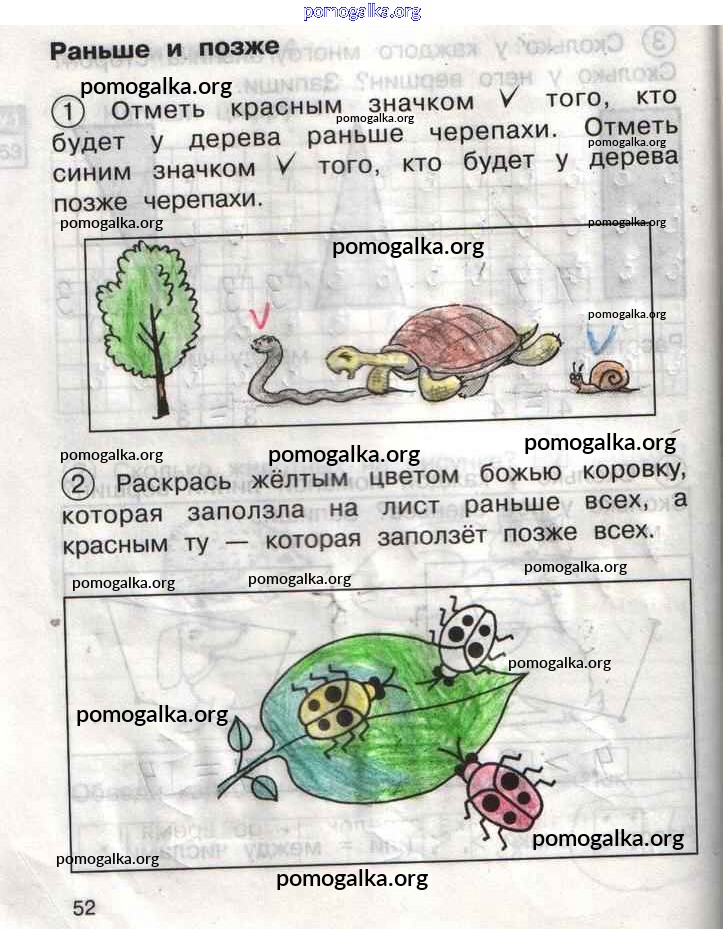 pomogalka.org
Раньше и позже
pomogalka.org
1 Отметь красным значком V того, кто
pomogalka.org
будет у дерева раньше черепахи. Отметь
pomogalka.org
синим значком V того, кто будет у дерева
позже черепахи.
pomogalka.org
pomogalka.org
pomogalka.org
pomogalka.org
pomogalka.org
pomogalka.org
pomogalka.org
2 Раскрась жёлтым цветом божью коровку,
которая заползла на лист раньше всех, а
красным ту — которая заползёт позже всех.
pomogalka.org
pomogalka.org
pomogalka.org
pomogalka.org
pomogalka.org
pomogalka.org
pomogalka.org
pomogalka.org
52